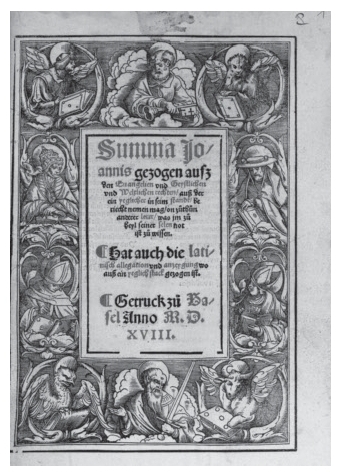 Summa Jo/
annis gezogen ausz
den Evangelien vnd Geystlichen
vnd Weltlichen rechten/ auß der
ein yeglicher in sim standt/ be
richt nemen mag/ on zůthůn
anderer leüt/ was jm zů
heyl seiner selen not
ist zů wissen.
¶ Hat auch die lati
nisch allegation vnd anzeygung wo
auß ein yeglich stuck gezogen ist.
¶ Getruckt zů Ba/
sel Anno M. D.
XVIII.